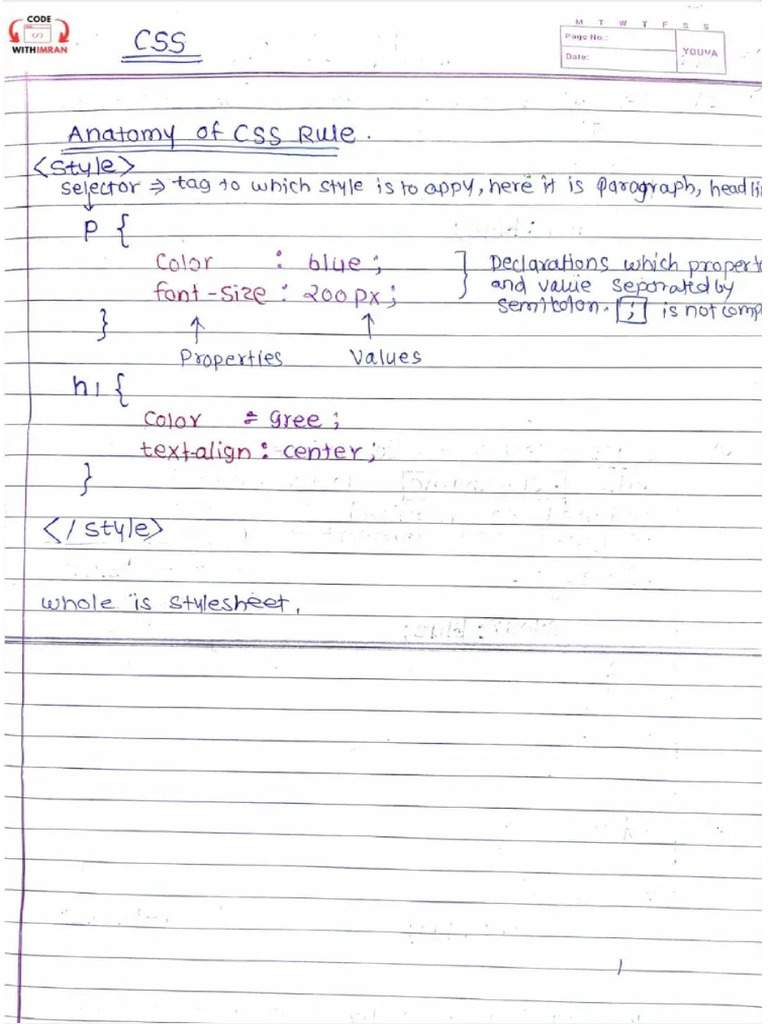 CODE
WITHIMRAN
CSS
M T W T F S S
Page No.:
Date:
YOUVA
Anatomy of CSS Rule.
<style>
selector ⇒ tag to which style is to appy, here it is paragraph, headli
p {
Color : blue ;
font-size : 200px ;
}
Declarations which propert
and value separated by
semicolon. ; is not comp
↑ ↑
Properties Values
h1 {
Color = Gree ;
text-align : center ;
}
</style>
whole is stylesheet.
1